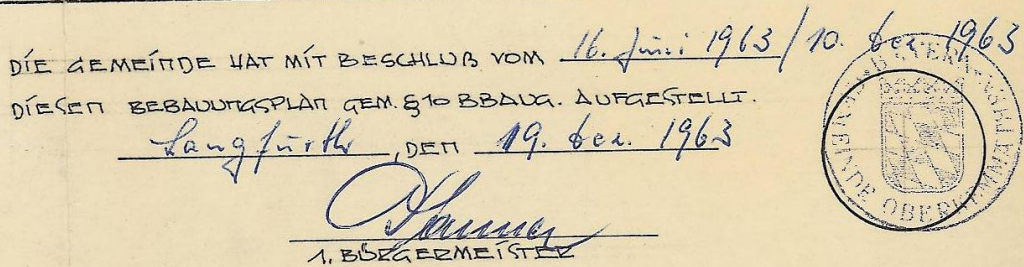 DIE GEMEINDE HAT MIT BESCHLUß VOM 16. Juni 1963 / 10. Dez. 1963
DIESEN BEBAUUNGSPLAN GEM. § 10 BBAUG. AUFGESTELLT.
Langfurth, DEN 19. Dez. 1963
1. BÜRGERMEISTER
BAYERN
GEMEINDE OBERKEMMATHEN